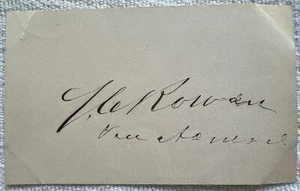 S C Rowan
Vice Admiral